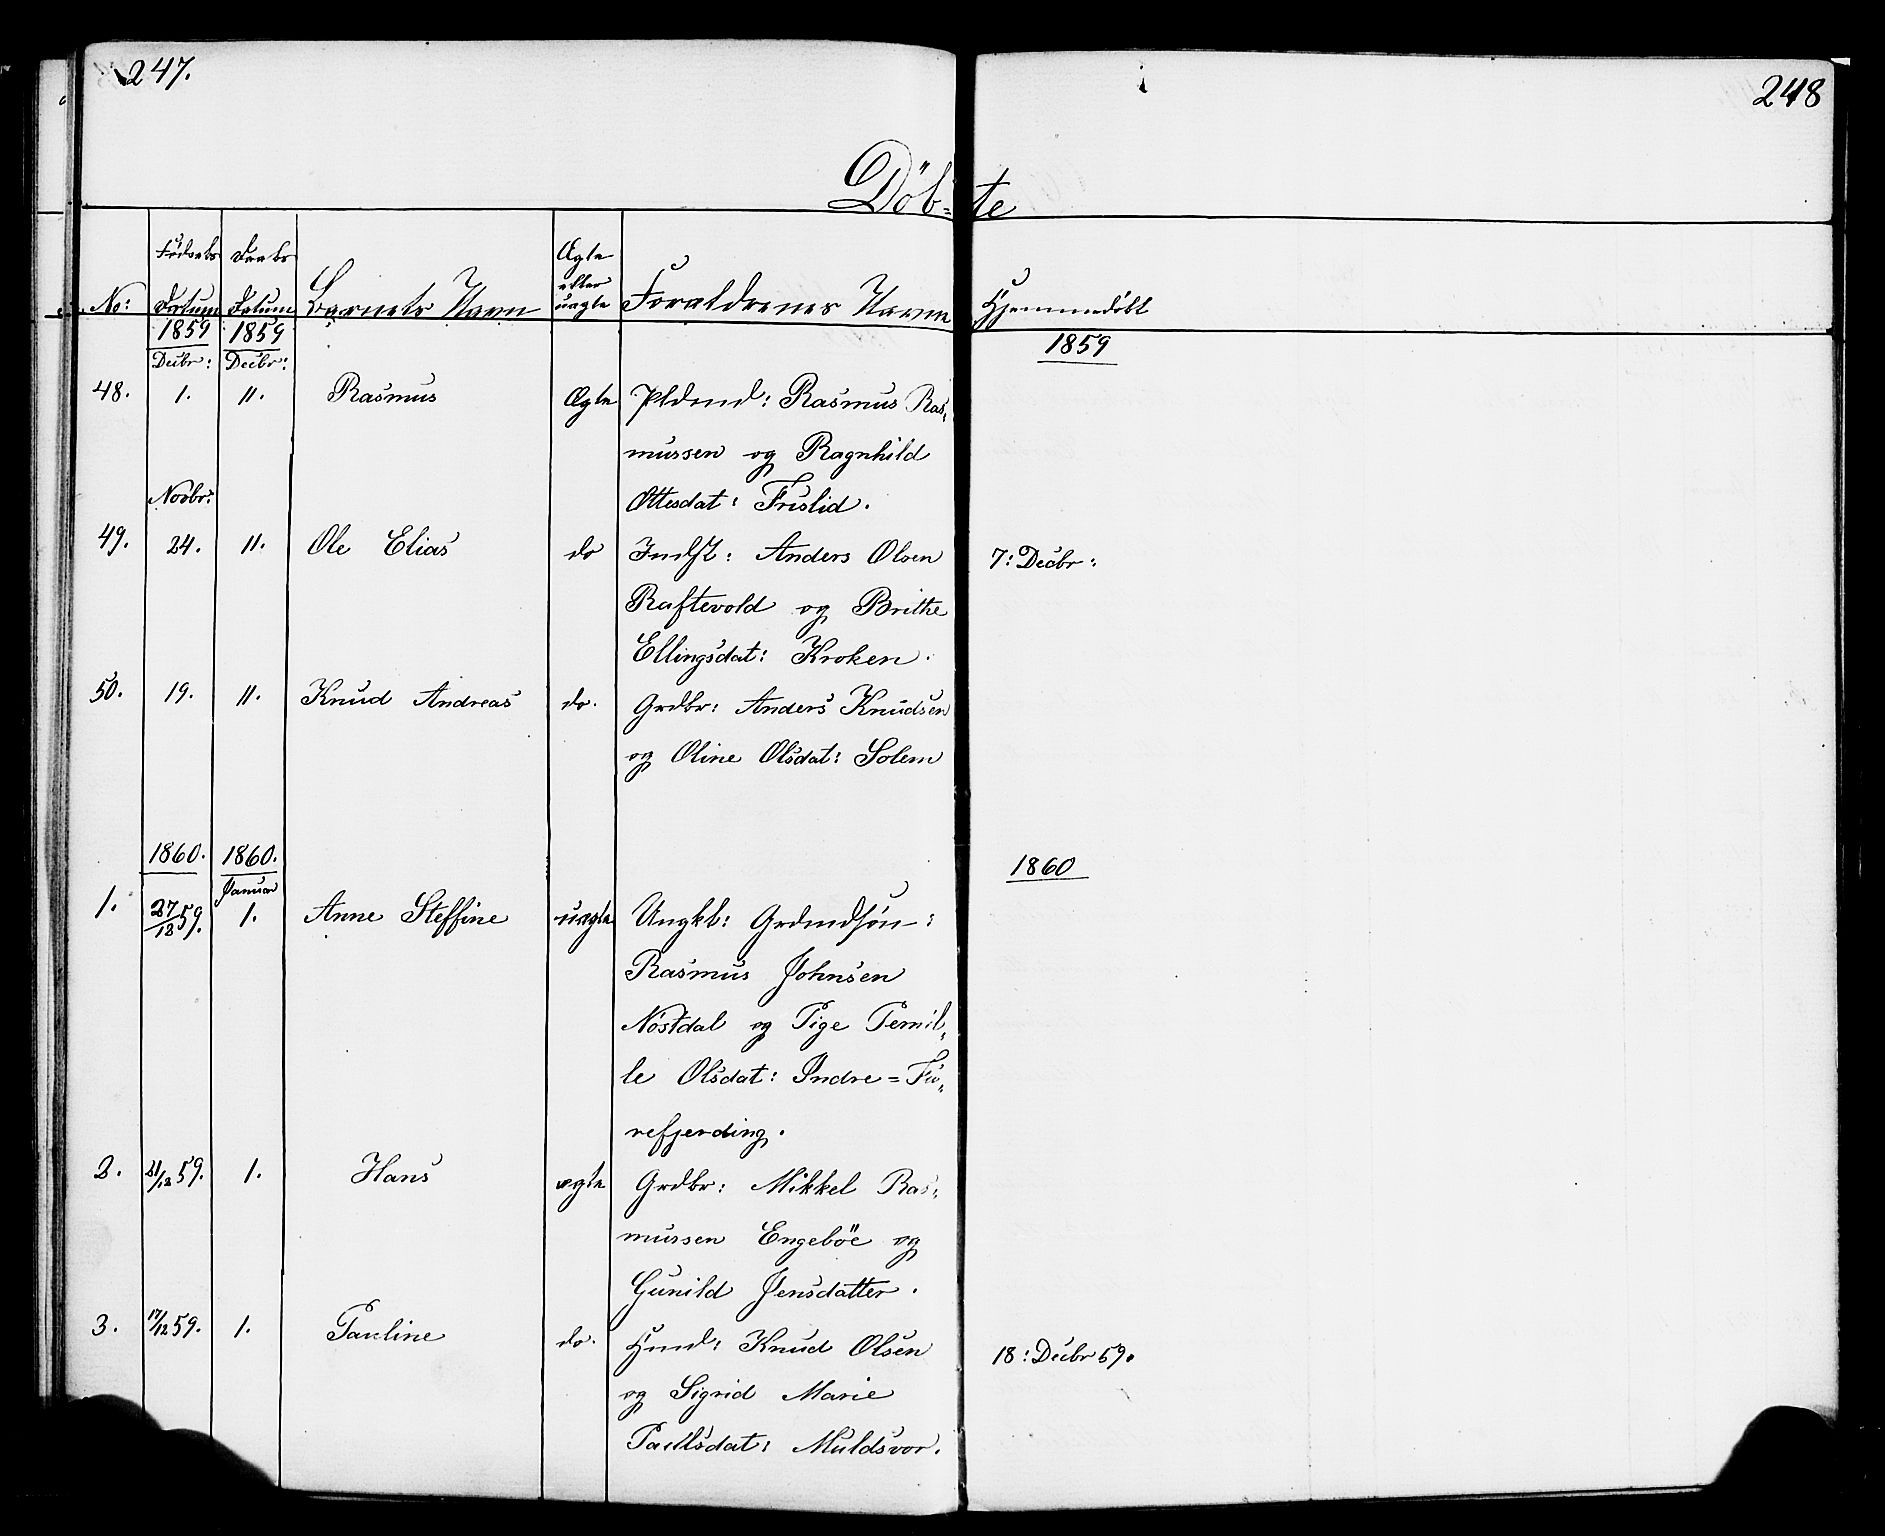 247.
248
Döb=te
No: Fødsels Datum Daabs Datum Barnets Navn Ægte eller uægte Forældrenes Navne Hjemmedöbt
1859 1859 1859
Decbr: Decbr:
48. 1. 11. Rasmus Ægte Pldmd: Rasmus Ras-
mussen og Ragnhild
Ottesdat: Frislid.
Novbr:
49. 24. 11. Ole Elias do Indst: Anders Olsen 7: Decbr:
Raftevold og Brithe
Ellingsdat: Kroken.
50. 19. 11. Knud Andreas do. Grdbr: Anders Knudsen
og Oline Olsdat: Solem
1860. 1860. 1860
Januar
1. 27/12 59. 1. Anne Steffine uægte Ungkl: Grdmdsøn:
Rasmus Johnsen
Nöstdal og Pige Pernil-
le Olsdat: Indre=Fu-
refjerding.
2. 21/12 59. 1. Hans ægte Grdbr: Mikkel Ras-
mussen Engeböe og
Gunild Jensdatter.
3. 17/12 59. 1. Pauline do. Hmd: Knud Olsen 18: Decbr 59.
og Sigrid Marie
Paulsdat: Muldsvor.